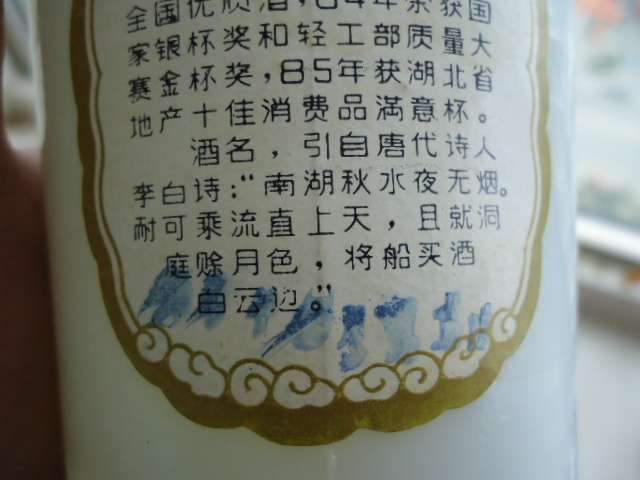 全国优质酒，84年荣获国
家银杯奖和轻工部质量大
赛金杯奖，85年获湖北省
地产十佳消费品满意杯。
酒名，引自唐代诗人
李白诗：“南湖秋水夜无烟。
耐可乘流直上天，且就洞
庭赊月色，将船买酒
白云边。”